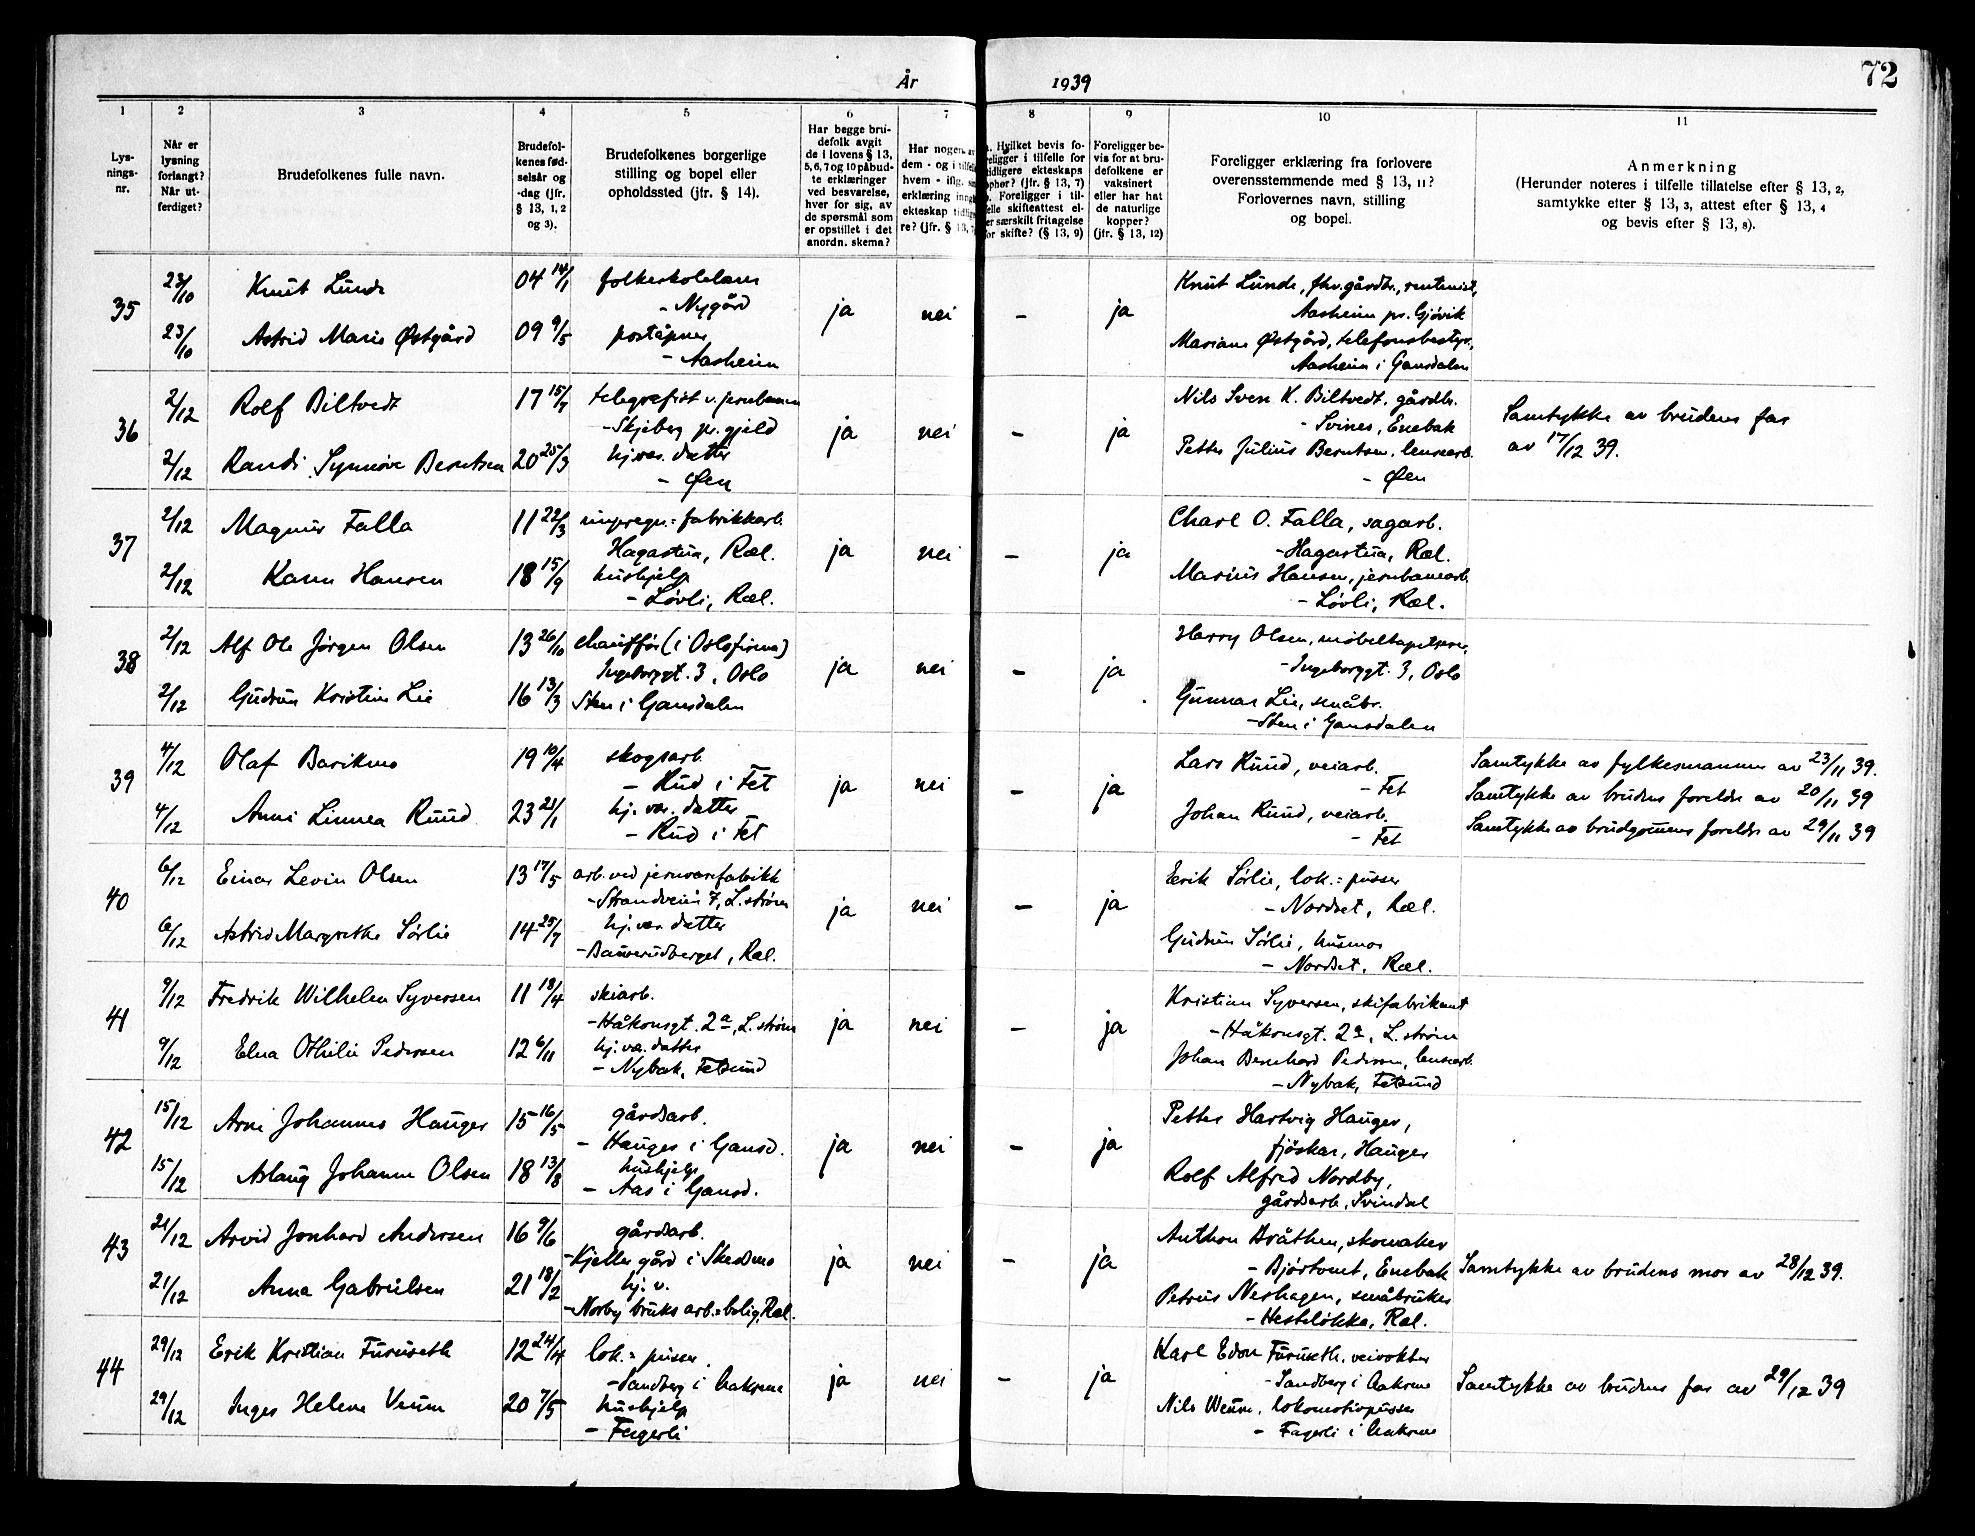 År 1939
72
1 2 3 4 5 6 7 8 9 10 11
Lys-
nings-
nr.
Når er
lysning
forlangt?
Når ut-
ferdiget?
Brudefolkenes fulle navn.
Brudefol-
kenes fød-
selsår og
-dag (jfr.
§ 13, 1, 2
og 3).
Brudefolkenes borgerlige
stilling og bopel eller
opholdssted (jfr. § 14).
Har begge bru-
defolk avgit
de i lovens § 13,
5, 6, 7 og 10 påbud-
te erklæringer
ved besvarelse,
hver for sig, av
de spørsmål som
er opstillet i det
anordn. skema?
Har nogen av
dem - og i tilfelle
hvem - iflg.
erklæring inngått
ekteskap tidlige-
re? (jfr. § 13,
Hvilket bevis fo-
religger i tilfelle for
tidligere ekteskaps
ophør? (jfr. § 13, 7)
Foreligger i til-
felle skifteattest el-
ler særskilt fritagelse
for skifte? (§ 13, 9)
Foreligger be-
vis for at bru-
defolkene er
vaksinert
eller har hat
de naturlige
kopper?
(jfr. § 13, 12)
Foreligger erklæring fra forlovere
overensstemmende med § 13, 11?
Forlovernes navn, stilling
og bopel.
Anmerkning
(Herunder noteres i tilfelle tillatelse efter § 13, 2,
samtykke efter § 13, 3, attest efter § 13, 4
og bevis efter § 13, 8).
35 23/10 Knut Lunde 04 14/1 folkeskolelærer
- Nygård
ja nei - ja
Knut Lunde, fhv. gårdbr., rentenist,
Aasheim pr. Gjövik
23/10 Astrid Marie Østgård 09 9/5 poståpner
- Aasheim
Mariane Østgård, telefonbestyr.,
Aasheim i Gansdalen
36 2/12 Rolf Biltvedt 17 15/7 telegrafist v. jernbanen
- Skjeberg pr. gjeld
ja nei - ja
Nils Sven K. Biltvedt, gårdbr.
- Svines, Enebak
Samtykke av brudens far
av 17/12 39.
2/12 Randi Synnöve Berntsen 20 25/3 hj.vær. datter
- Øen
Petter Julius Berntsen, lensearb.
- Øen
37 2/12 Magnus Falla 11 22/3 impregn.= fabrikkarb.
Hagastua, Ræl.
ja nei - ja
Charl O. Falla, sagarb.
- Hagastua, Ræl.
2/12 Karen Hansen 18 15/9 hushjelp
- Lövli, Ræl.
Marius Hansen, jernbanearb.
- Lövli, Ræl.
38 2/12 Alf Ole Jörgen Olsen 13 26/10 chaufför (i Oslofirma)
Ingeborggt. 3, Oslo
ja nei - ja
Harry Olsen, möbeltapetserer,
- Ingeborggt. 3, Oslo
2/12 Gudrun Kristine Lie 16 13/3 Sten i Gansdalen
Gunnar Lie, småbr.
- Sten i Gansdalen
39 4/12 Olaf Barikmo 19 10/4 skogsarb.
- Rud i Fet
ja nei - ja
Lars Ruud, veiarb.
- Fet
Samtykke av fylkesmannen av 23/11 39.
Samtykke av brudens foreldre av 20/11 39
Samtykke av brudgomens foreldre av 29/11 39
4/12 Anni Linnea Ruud 23 21/1 hj. vær. datter
- Rud i Fet
Johan Ruud, veiarb.
- Fet
40 6/12 Einar Levin Olsen 13 17/5 arb. ved jernvarefabrikk
- Strandveien 7, L.ström
ja nei - ja
Erik Sörlie, lok.= pusser
- Nordset, Ræl.
6/12 Astrid Margrethe Sörlie 14 25/7 hj. vær. datter
- Bauserudberget, Ræl.
Gudrun Sörlie, husmor
- Nordset, Ræl.
41 9/12 Fredrik Wilhelm Syversen 11 18/4 skiarb.
- Håkonsgt. 2a, L.ström
ja nei - ja
Kristian Syversen, skifabrikant
- Håkonsgt. 2a, L.ström
9/12 Elna Othilie Pedersen 12 6/11 hj. vær. datter
- Nybak, Fetsund
Johan Bernhard Pedersen, lensearb.
- Nybak, Fetsund
42 15/12 Arne Johannes Hauger 15 16/5 gårdsarb.
- Hauger i Gansd.
ja nei - ja
Petter Hartvig Hauger,
fjöskar, Hauger
15/12 Aslaug Johanne Olsen 18 13/8 hushjelp
- Aas i Gansd.
Rolf Alfred Nordby,
gårdsarb., Svindal
43 21/12 Arvid Jonhard Andersen 16 9/6 gårdsarb.
- Kjeller gård i Skedsmo
ja nei - ja
Anthon Bråthen, skomaker
- Björtomt, Enebak
Samtykke av brudens mor av 28/12 39.
21/12 Anna Gabrielsen 21 18/2 hj. v.
- Norby bruks arb.=bolig, Ræl.
Petrus Neshagen, småbruker
- Hestelökka, Ræl.
44 29/12 Erik Kristian Furuseth 12 24/4 lok.= pusser
- Sandberg i Aakrene
ja nei - ja
Karl Edor Furuseth, veivokter
- Sandberg i Aakrene
Samtykke av brudens far av 29/12 39
29/12 Inger Helene Veum 20 7/5 hushjelp
- Fagerli
Nils Weum, lokomotivpusser
- Fagerli i Aakrene